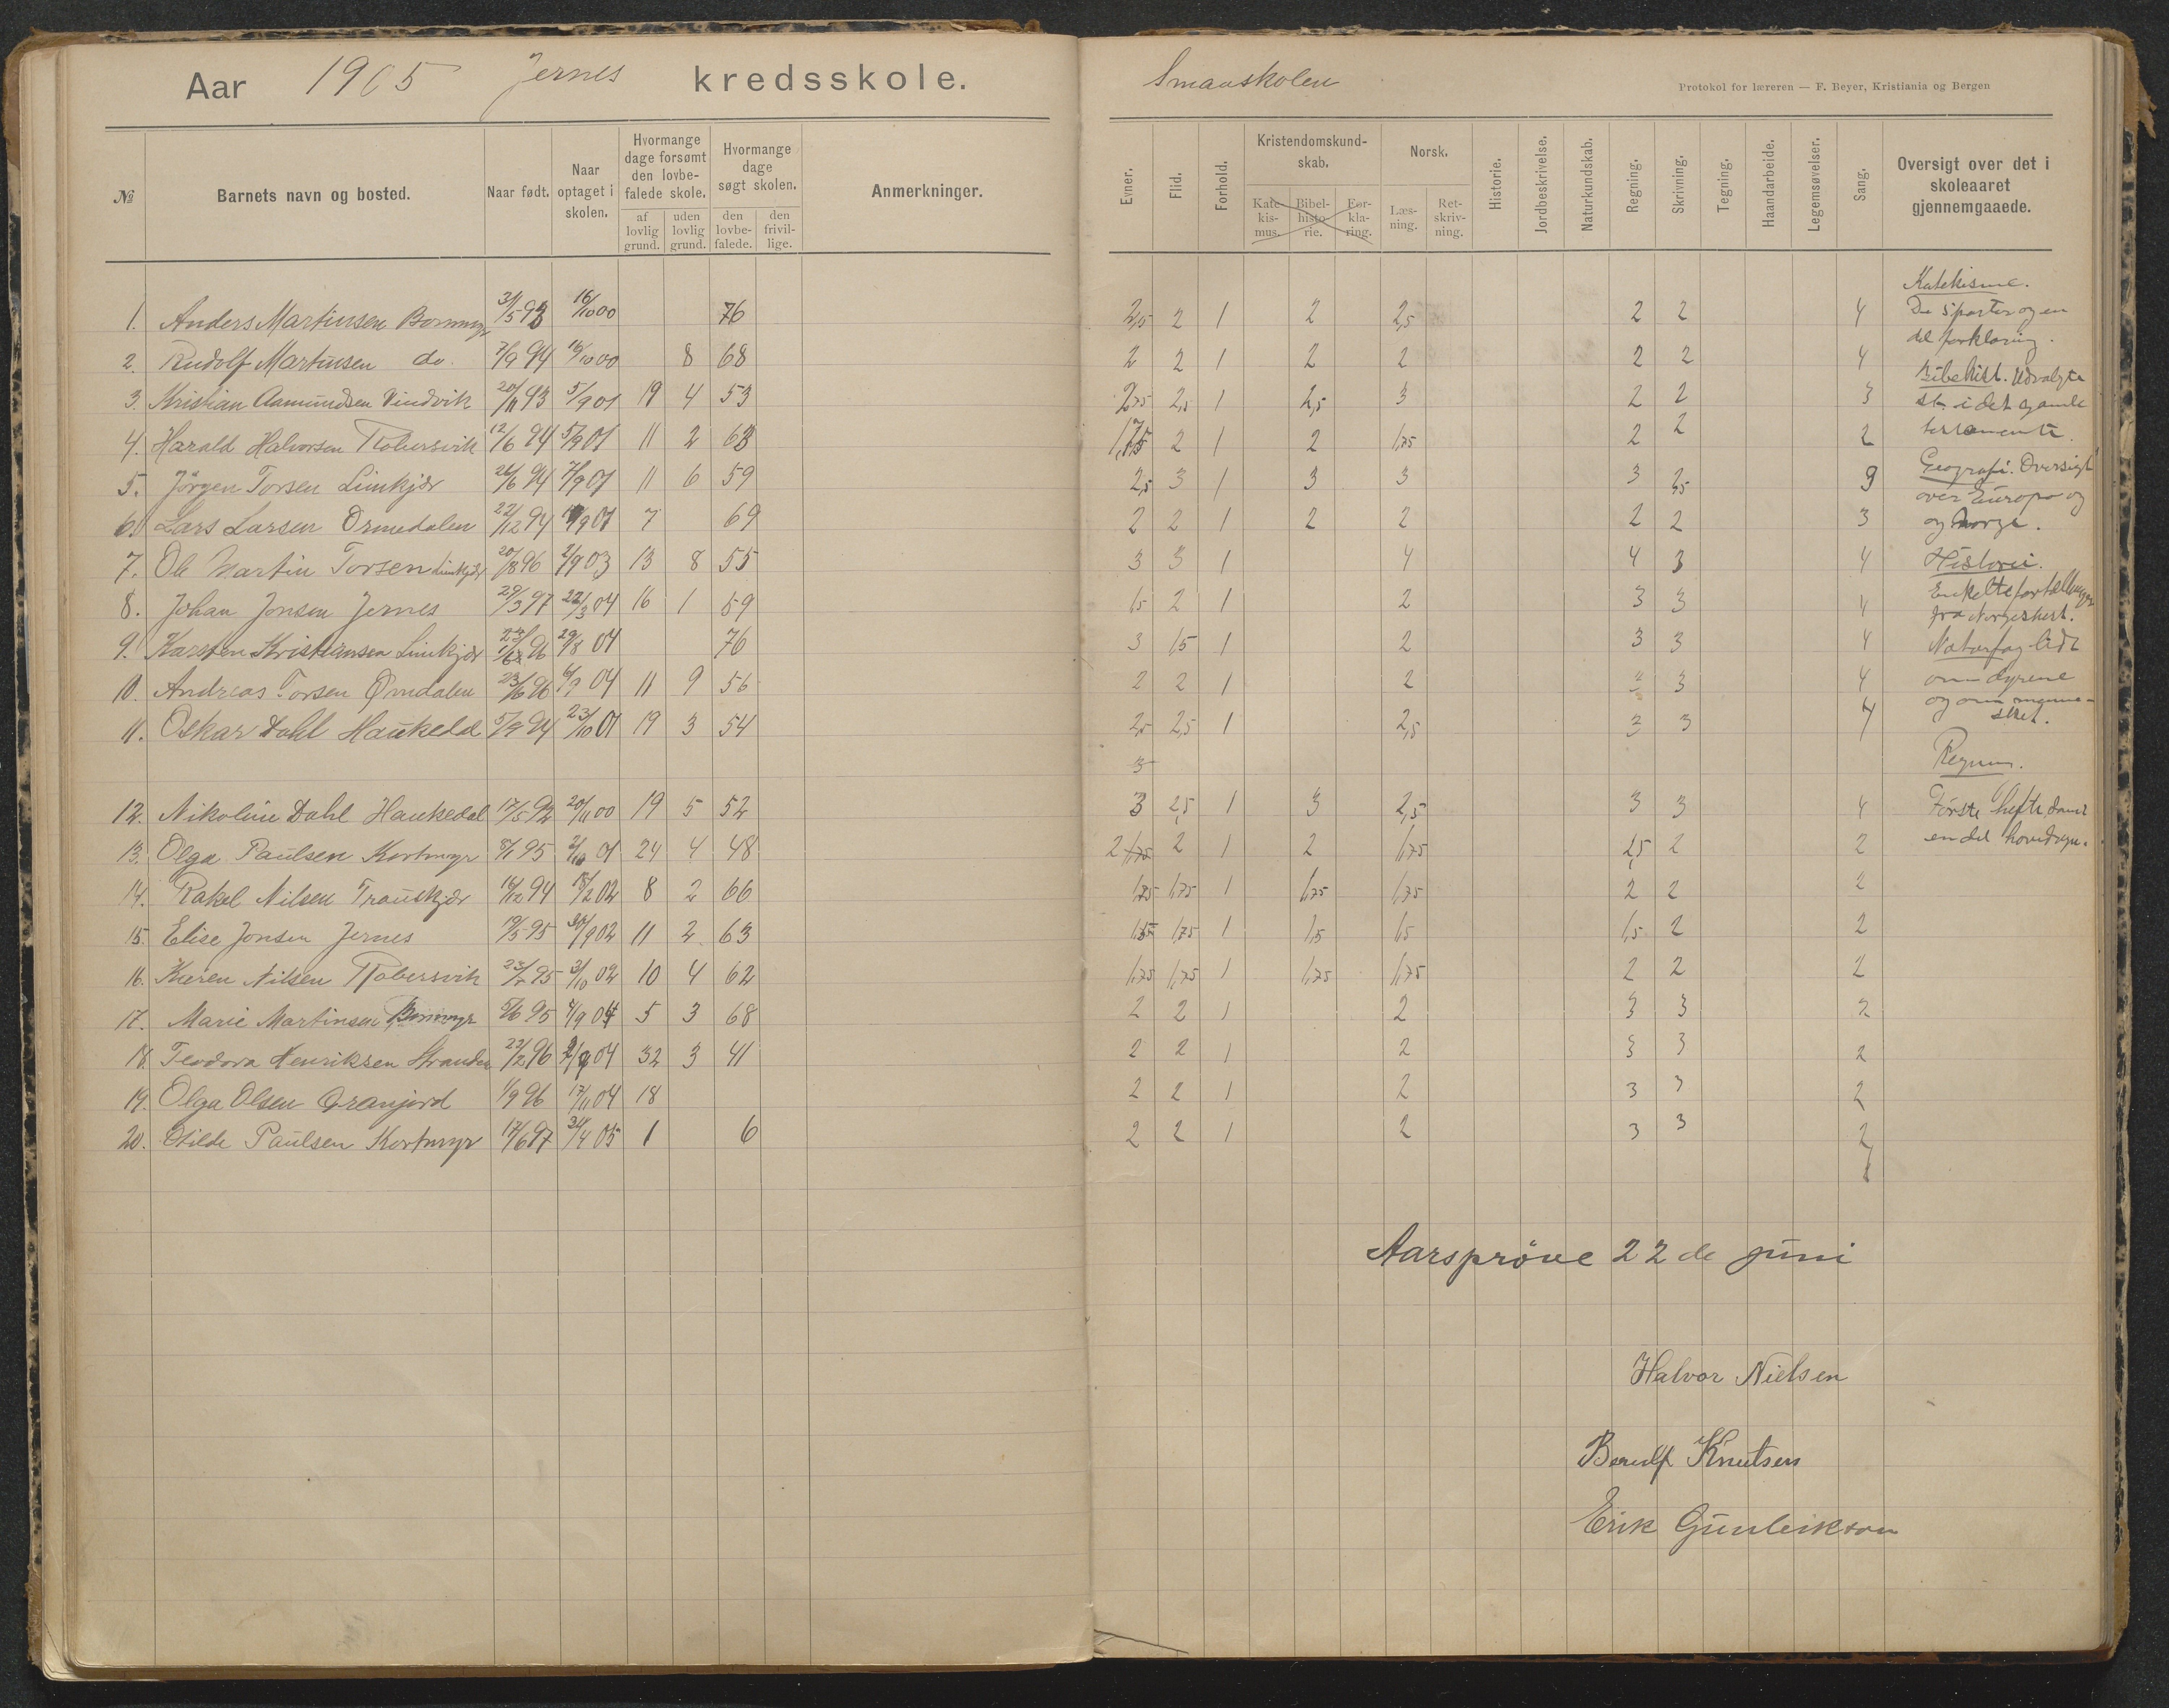 Aar 1905 Jernes kredsskole.
№ Barnets navn og bosted. Naar født. Naar optaget i skolen. Hvormange dage forsømt den lovbefalede skole. af lovlig grund. uden lovlig grund. Hvormange dage søgt skolen. den lovbefalede. den frivillige. Anmerkninger.
1. Anders Martinsen 31/5 93 16/10 00 76
2. Rudolf Martinsen do. 7/9 94 16/10 00 8 68
3. Kristian Aamundsen Vindvik 20/11 93 5/9 01 19 4 53
4. Harald Halvorsen Robersvik 12/6 94 5/9 01 11 2 63
5. Jörgen Torsen Limkjær 26/6 94 7/9 01 11 6 59
6. Lars Larsen Ormedalen 22/12 94 9 01 7 69
7. Ole Martin Torsen Limkjær 20/8 96 2/9 03 13 8 55
8. Johan Jonsen Jernes 29/3 97 22/3 04 16 1 59
9. Karsten Kristiansen Limkjær 96 29/8 04 76
10. Andreas Torsen Ormdalen 23/6 96 6/9 04 11 9 56
11. Oskar Dahl Haukedal 5/9 94 23/10 01 19 3 54
12. Nikoline Dahl Haukedal 17/5 92 20/11 00 19 5 52
13. Olga Paulsen Kortmyr 8/1 95 2/10 01 24 4 48
14. Rakel Nilsen Trauskjær 16/12 94 18/2 02 8 2 66
15. Elise Jonsen Jernes 19/5 95 30/9 02 11 2 63
16. Karen Nilsen Robersvik 95 3/10 02 10 4 62
17. Marie Martinsen 5/6 95 4/9 04 5 3 68
18. Teodora Henriksen Stranden 22/2 96 04 32 3 41
19. Olga Olsen Granjord 1/9 96 17/11 04 18
20. Otilde Paulsen Kortmyr 17/6 97 24/4 05 1 6
Smaaskolen
Protokol for læreren — F. Beyer, Kristiania og Bergen
Evner. Flid. Forhold. Kristendomskundskab. Katekismus. Bibelhistorie. Forklaring. Norsk. Læsning. Retskrivning. Historie. Jordbeskrivelse. Naturkundskab. Regning. Skrivning. Tegning. Haandarbeide. Legemsøvelser. Sang. Oversigt over det i skoleaaret gjennemgaaede.
2,5 2 1 2 2,5 2 2 4
2 2 1 2 2 2 2 4
2,75 2,5 1 2,5 3 2 2 3
2 1 2 1,75 2 2 2
2,5 3 1 3 3 3 2,5 9
2 2 1 2 2 2 2 3
3 3 1 4 4 3 4
1,5 2 1 2 3 3 4
3 1,5 1 2 3 3 4
2 2 1 2 3 3 4
2,5 2,5 1 2,5 3 3 4
3
3 2,5 1 3 2,5 3 3 4
2 1,75 2 1 2 1,75 2,5 2 2
1,75 1,75 1 1,75 1,75 2 2 2
1,75 1 1,5 1,5 1,5 2 2
1,75 1,75 1 1,75 1,75 2 2 2
2 2 1 2 3 3 2
2 2 1 2 3 3 2
2 2 1 2 3 3 2
2 2 1 2 3 3 2
Katekisme.
De 5 parter og en
del forklaring.
Bibelhist. Udvalgte
st. i det gamle
testamente.
Geografi. Oversigt
over Europa og
og Norge.
Historie.
Enkelte fortellinger
fra Norgeshist.
Naturfag lidt
om dyrene
og om menne-
sket.
Regning.
Første hefte samt
en del hovedregn.
Aarspröve 22de juni
Halvor Nielsen
Berulf Knutsen
Erik Gunleikson